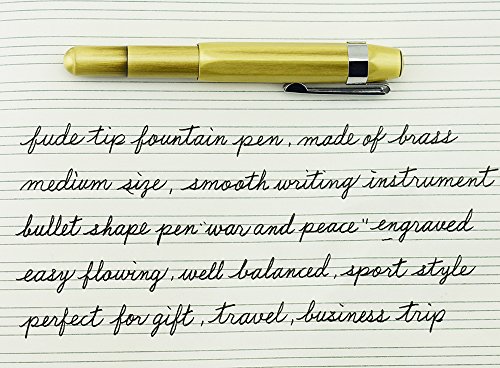 fude tip fountain pen, made of brass
medium size, smooth writing instrument
bullet shape pen "war and peace" engraved
easy flowing, well balanced, sport style
perfect for gift, travel, business trip